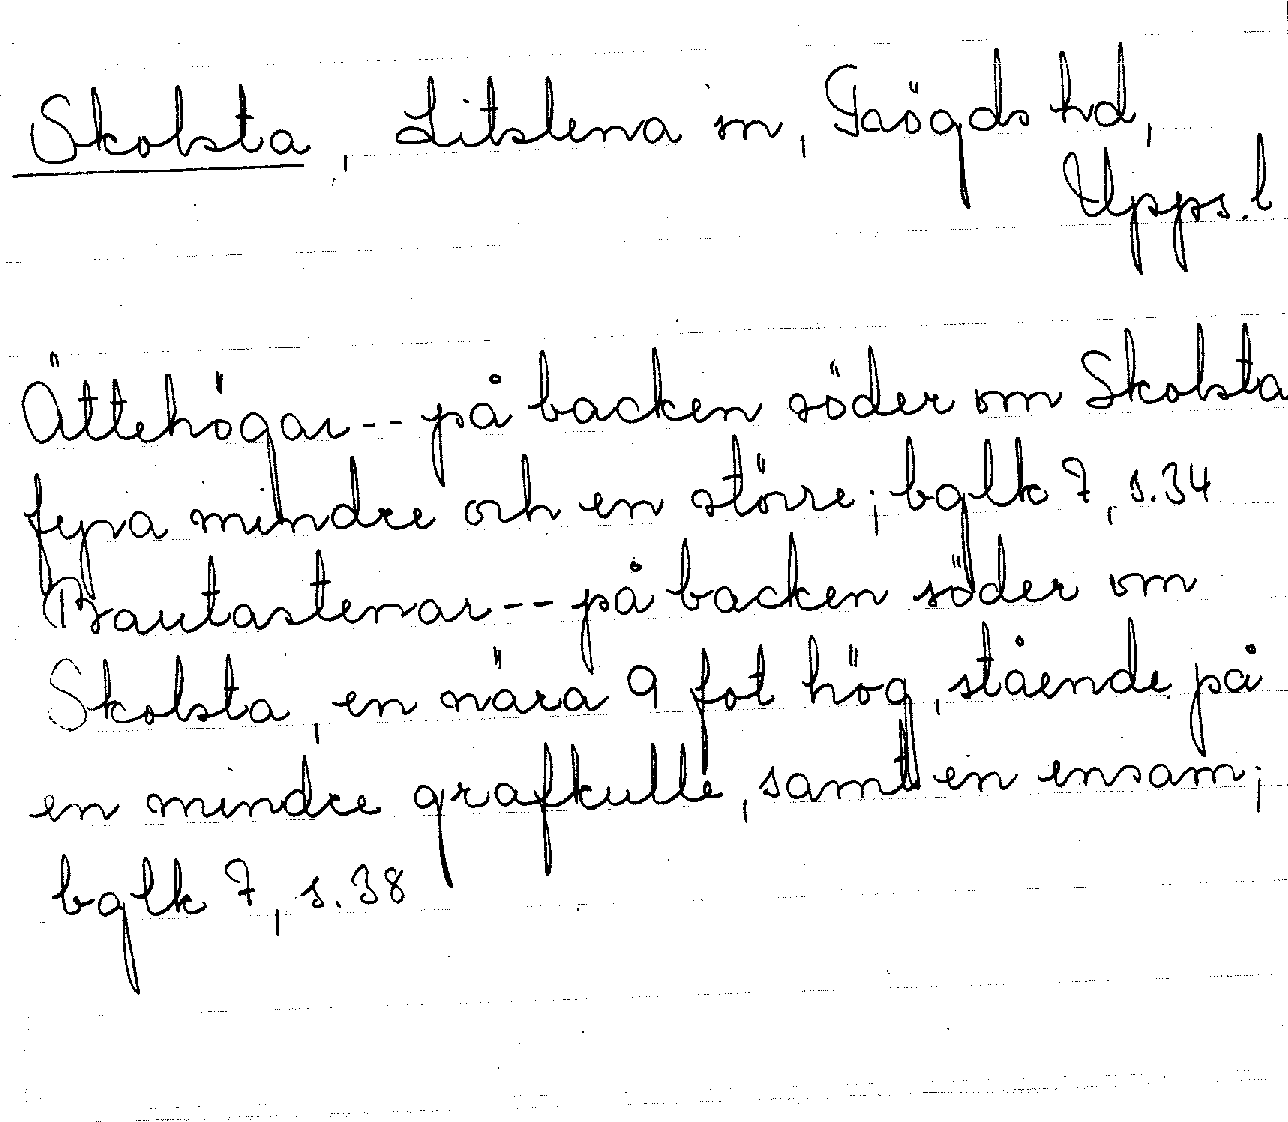 Skolsta, Litslena sn, Trögds hd,
Upps. l
Ättehögar -- på backen söder om Skolsta
fyra mindre och en större; bglk 7, s. 34
Bautastenar -- på backen söder om
Skolsta, en nära 9 fot hög, stående på
en mindre grafkulle, samt en ensam;
bglk 7, s. 38